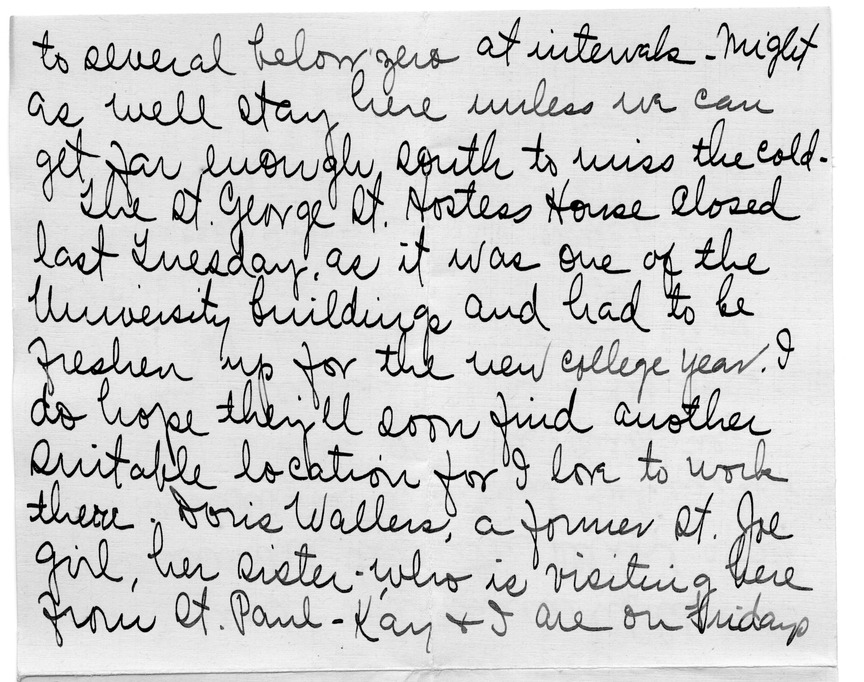 to several below zero at intervals - Might
as well stay here unless we can
get far enough south to miss the cold -
The St. George St. Hostess House closed
last Tuesday, as it was one of the
University buildings and had to be
freshen up for the new college year. I
do hope they'll soon find another
suitable location for I love to work
there. Doris Wallers, a former St. Joe
girl, her sister - who is visiting here
from St. Paul - Kay & I are on Fridays